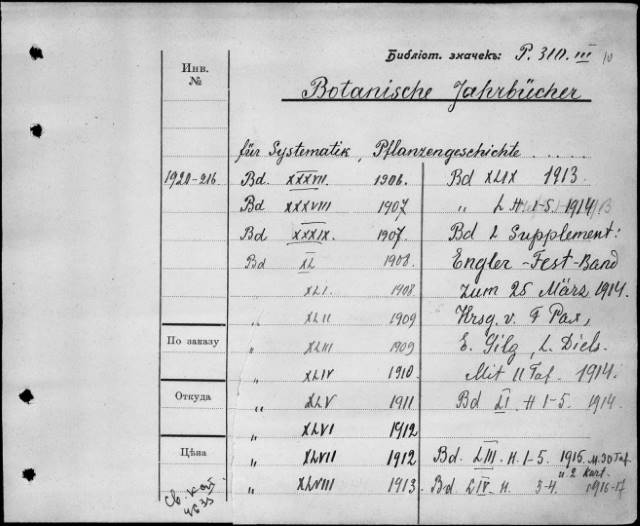 Библіот. значекъ: P. 310. III 10
Инв. №
Botanische Jahrbücher
für Systematik, Pflanzengeschichte . . . . .
1920-216 Bd. XXXVII. 1906. Bd XLIX 1913.
Bd. XXXVIII 1907 " L H. 1-5. 1914/13
Bd. XXXIX. 1907. Bd L Supplement:
Bd XL 1908. Engler-Fest-Band
XLI. 1908. zum 25 März 1914.
" XLII 1909 Hrsg. v. F Pax,
По заказу " XLIII 1909 E. Gilg, L. Diels.
" XLIV 1910. Mit 11 Taf. 1914.
Откуда " XLV 1911 Bd LI H 1-5. 1914.
" XLVI 1912
Цѣна " XLVII 1912 Bd. LIII. H. 1-5. 1915. м. 30 Taf.
u. 2 Kart.
" XLVIII 1913. Bd. LIV. H. 3-4. 1916-17
Св. кат
4633